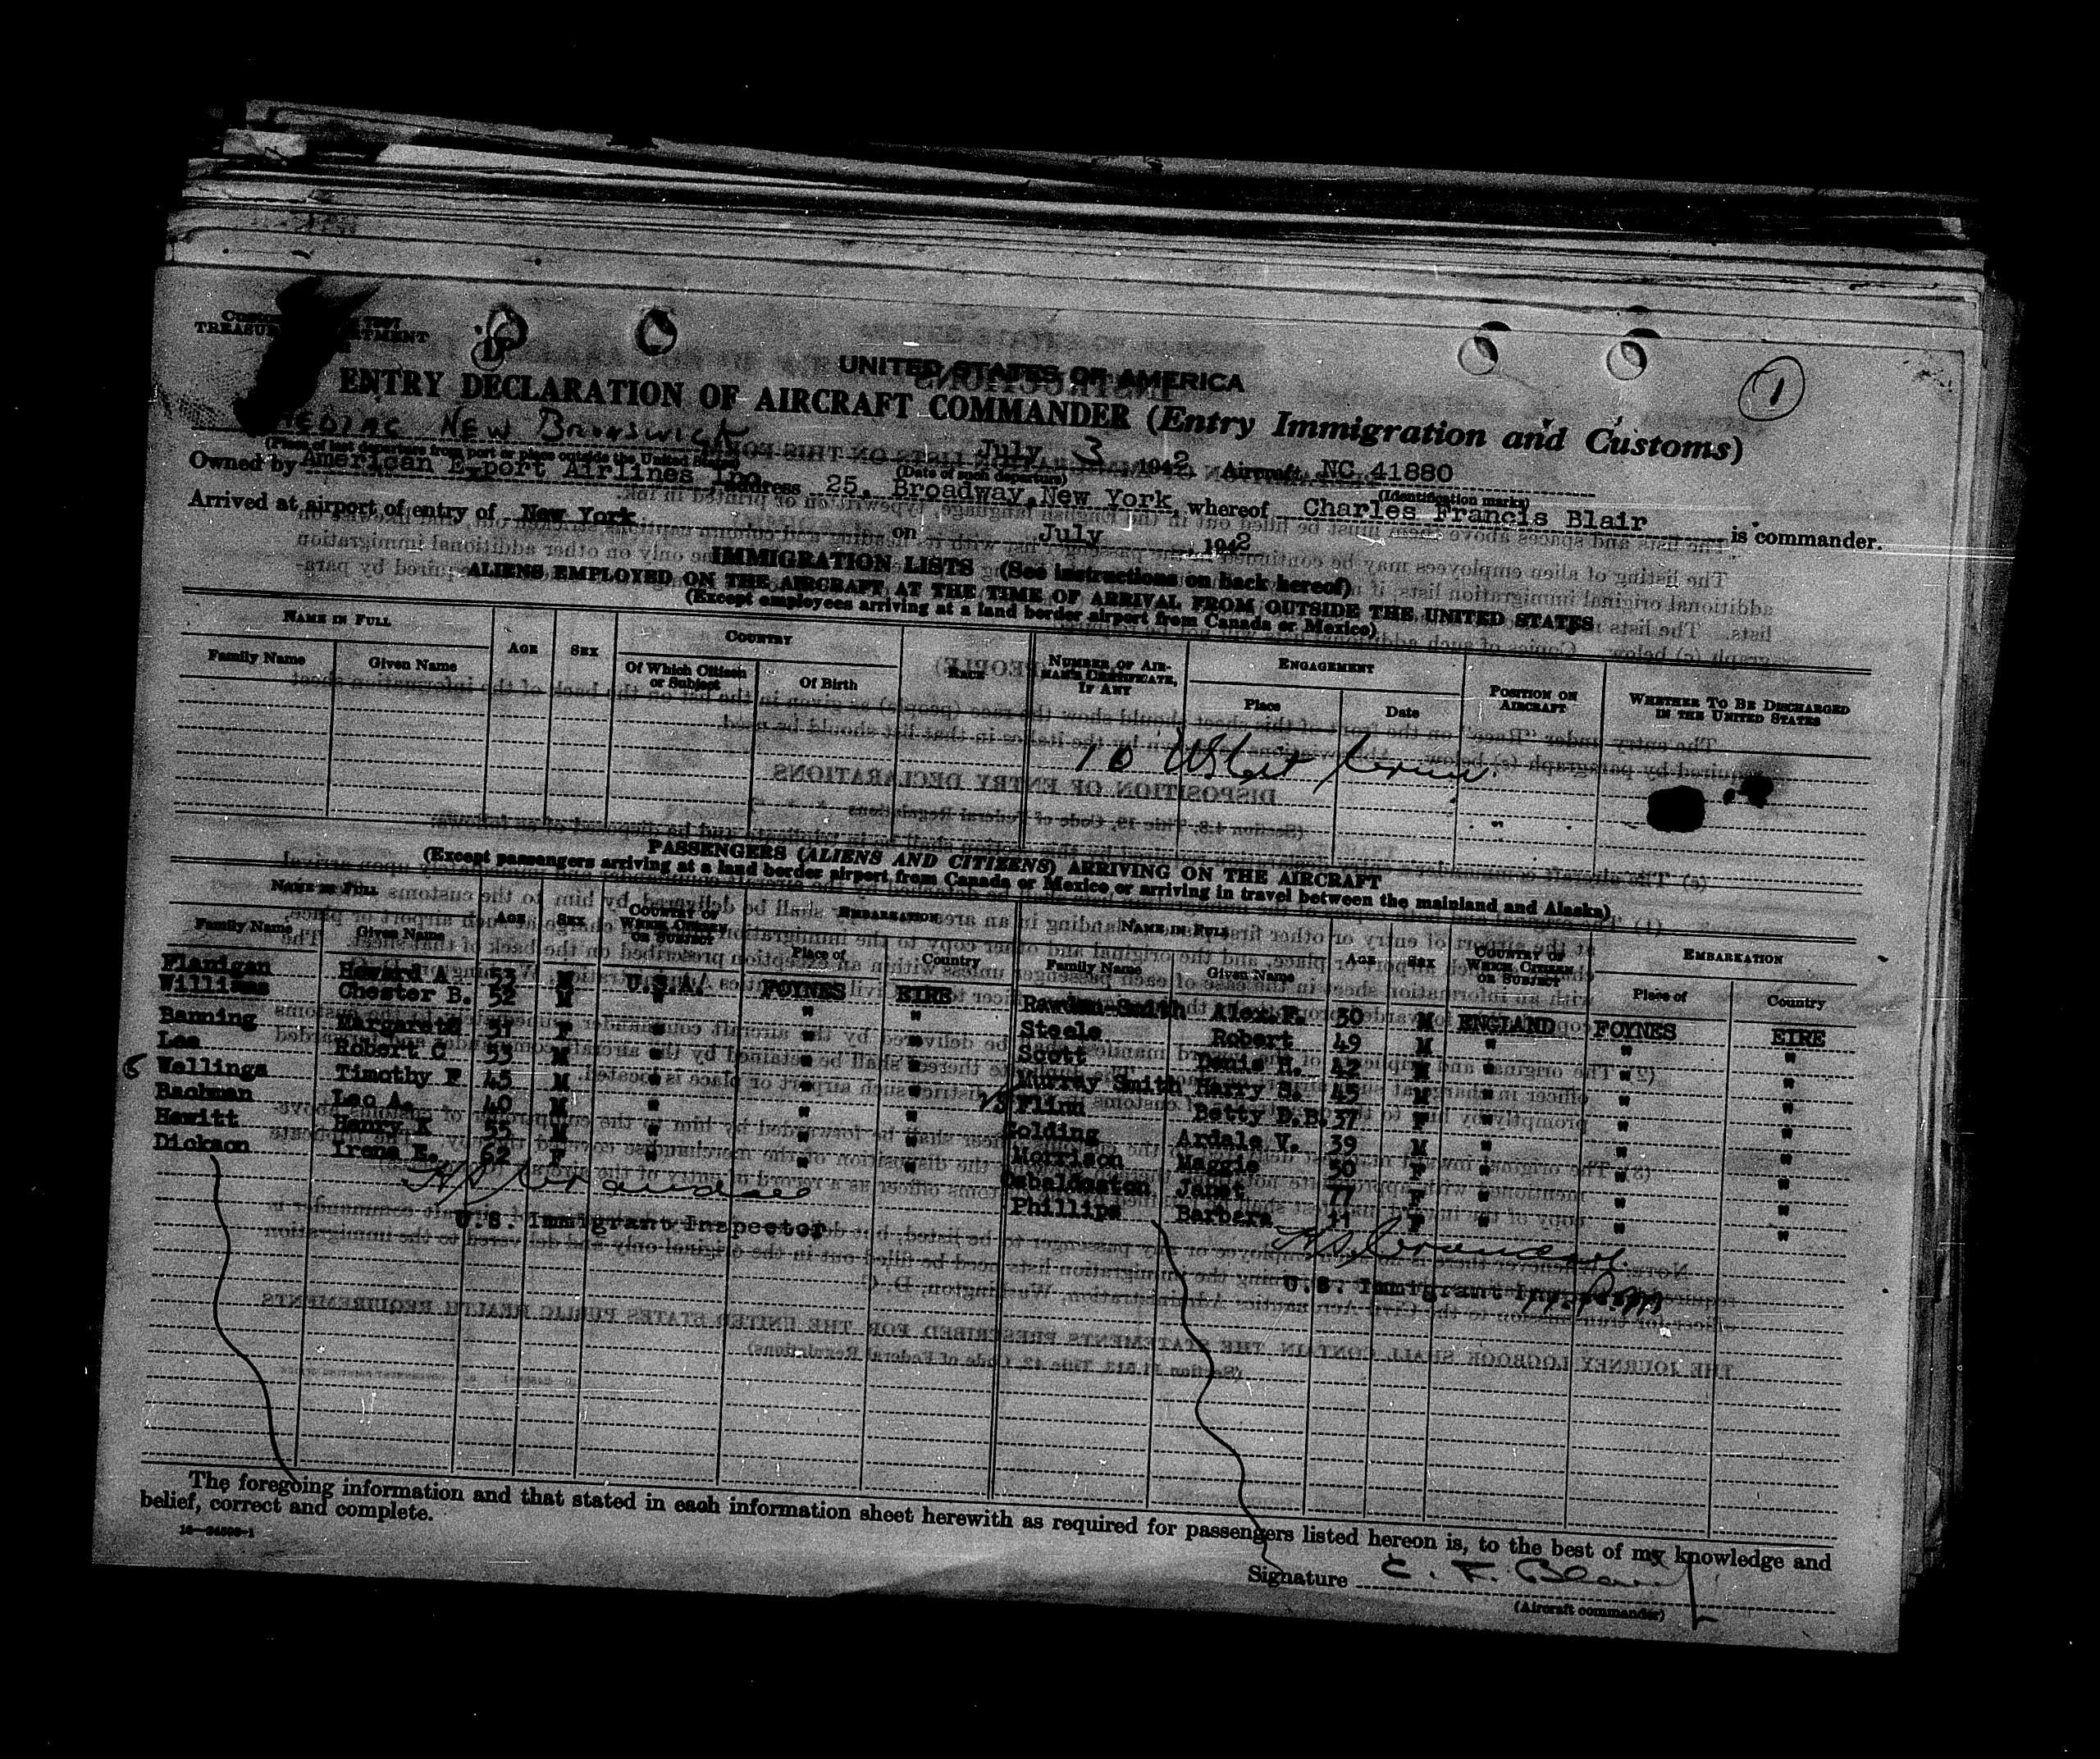 TREASURY DEPARTMENT
1
UNITED STATES OF AMERICA
ENTRY DECLARATION OF AIRCRAFT COMMANDER (Entry Immigration and Customs)
NEW BRUNSWICK July 3 1942 Aircraft NC 41880
(Place of last departure from port or place outside the United States) (Date of such departure) (Identification marks)
Owned by American Export Airlines Inc Address 25, Broadway, New York, whereof Charles Francis Blair is commander.
Arrived at airport of entry of New York on July 1942
IMMIGRATION LISTS (See instructions on back hereof)
ALIENS EMPLOYED ON THE AIRCRAFT AT THE TIME OF ARRIVAL FROM OUTSIDE THE UNITED STATES
(Except employees arriving at a land border airport from Canada or Mexico)
NAME IN FULL AGE SEX COUNTRY RACE NUMBER OF AIRMAN'S CERTIFICATE, IF ANY ENGAGEMENT POSITION ON AIRCRAFT WHETHER TO BE DISCHARGED IN THE UNITED STATES
Family Name Given Name Of Which Citizen or Subject Of Birth Place Date
10
PASSENGERS (ALIENS AND CITIZENS) ARRIVING ON THE AIRCRAFT
(Except passengers arriving at a land border airport from Canada or Mexico or arriving in travel between the mainland and Alaska)
NAME IN FULL AGE SEX COUNTRY OF WHICH CITIZEN OR SUBJECT EMBARKATION NAME IN FULL AGE SEX COUNTRY OF WHICH CITIZEN OR SUBJECT EMBARKATION
Family Name Given Name Place of Country Family Name Given Name Place of Country
Flanigan Howard A 53 M U.S.A. FOYNES EIRE Rawdon-Smith Alex.F. 30 M ENGLAND FOYNES EIRE
Williams Chester B. 52 M " " " Steele Robert 49 M " " "
Banning Margaret 51 F " " " Scott Denis H. 42 M " " "
Lee Robert C 53 M " " " Murray Smith Harry S. 45 M " " "
Wellings Timothy F. 43 M " " " Flinn Betty D.B. 37 F " " "
Bachman Leo A. 40 M " " " Golding Ardale V. 39 M " " "
Hewitt Henry K 55 M " " " Morrison Maggie 50 F " " "
Dickson Irene E. 62 F " " " Osbaldeston Janet 77 F " " "
Phillips Barbara 11 F " " "
U.S. Immigrant Inspector
U.S. Immigrant Inspector
The foregoing information and that stated in each information sheet herewith as required for passengers listed hereon is, to the best of my knowledge and
belief, correct and complete.
Signature C. F. Blair
(Aircraft commander)